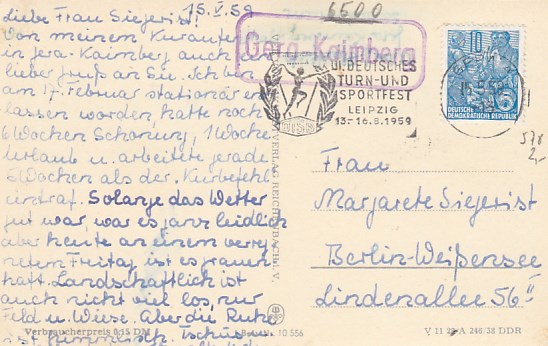 15.V.59
Liebe Frau Siegerist!
Von meinem Kuraufent
in Gera-Kaimberg auch
lieber Gruß an Sie. Ich bin
am 17. Februar stationär en
lassen worden, hatte noch
6 Wochen Schonung, 1 Woche
Urlaub u. arbeitete gerade
Wochen als der Kurbefehl
eintraf. Solange das Wetter
gut war, war es ganz leidlich
aber heute an einem verreg
netem Freitag ist es grauen
haft. Landschaftlich ist
auch nicht viel los, nur
Feld u. Wiese. Aber die Ruhe
ist himmlisch. Tschüss
Verbraucherpreis 0,15 DM
Bestell-Nr. 10 556
VERLAG REICHENBACH I. V.
6500
Gera-Kaimberg
III. DEUTSCHES
TURN-UND
SPORTFEST
LEIPZIG
13.-16.8.1959
DTSB
10
5
DEUTSCHE
DEMOKRATISCHE REPUBLIK
2,-
Frau
Margarete Siegerist
Berlin-Weißensee
Lindenallee 56II
V 11 28 A 246/38 DDR